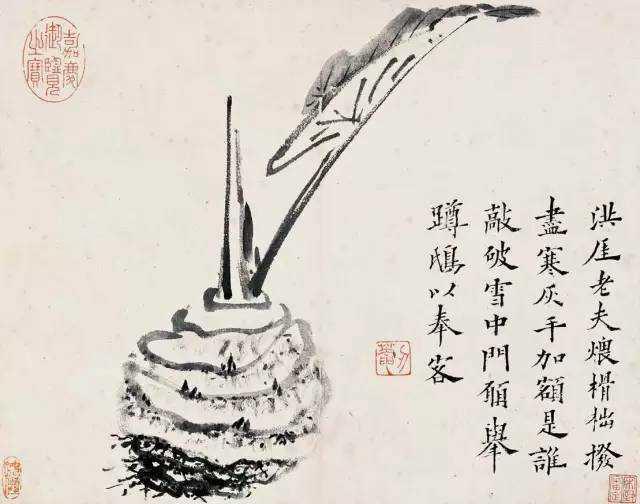 洪厓老夫煨榾柮撥
盡寒灰手加額是誰
敲破雪中門願舉
蹲鴟以奉客
嘉慶
御覽
之寶